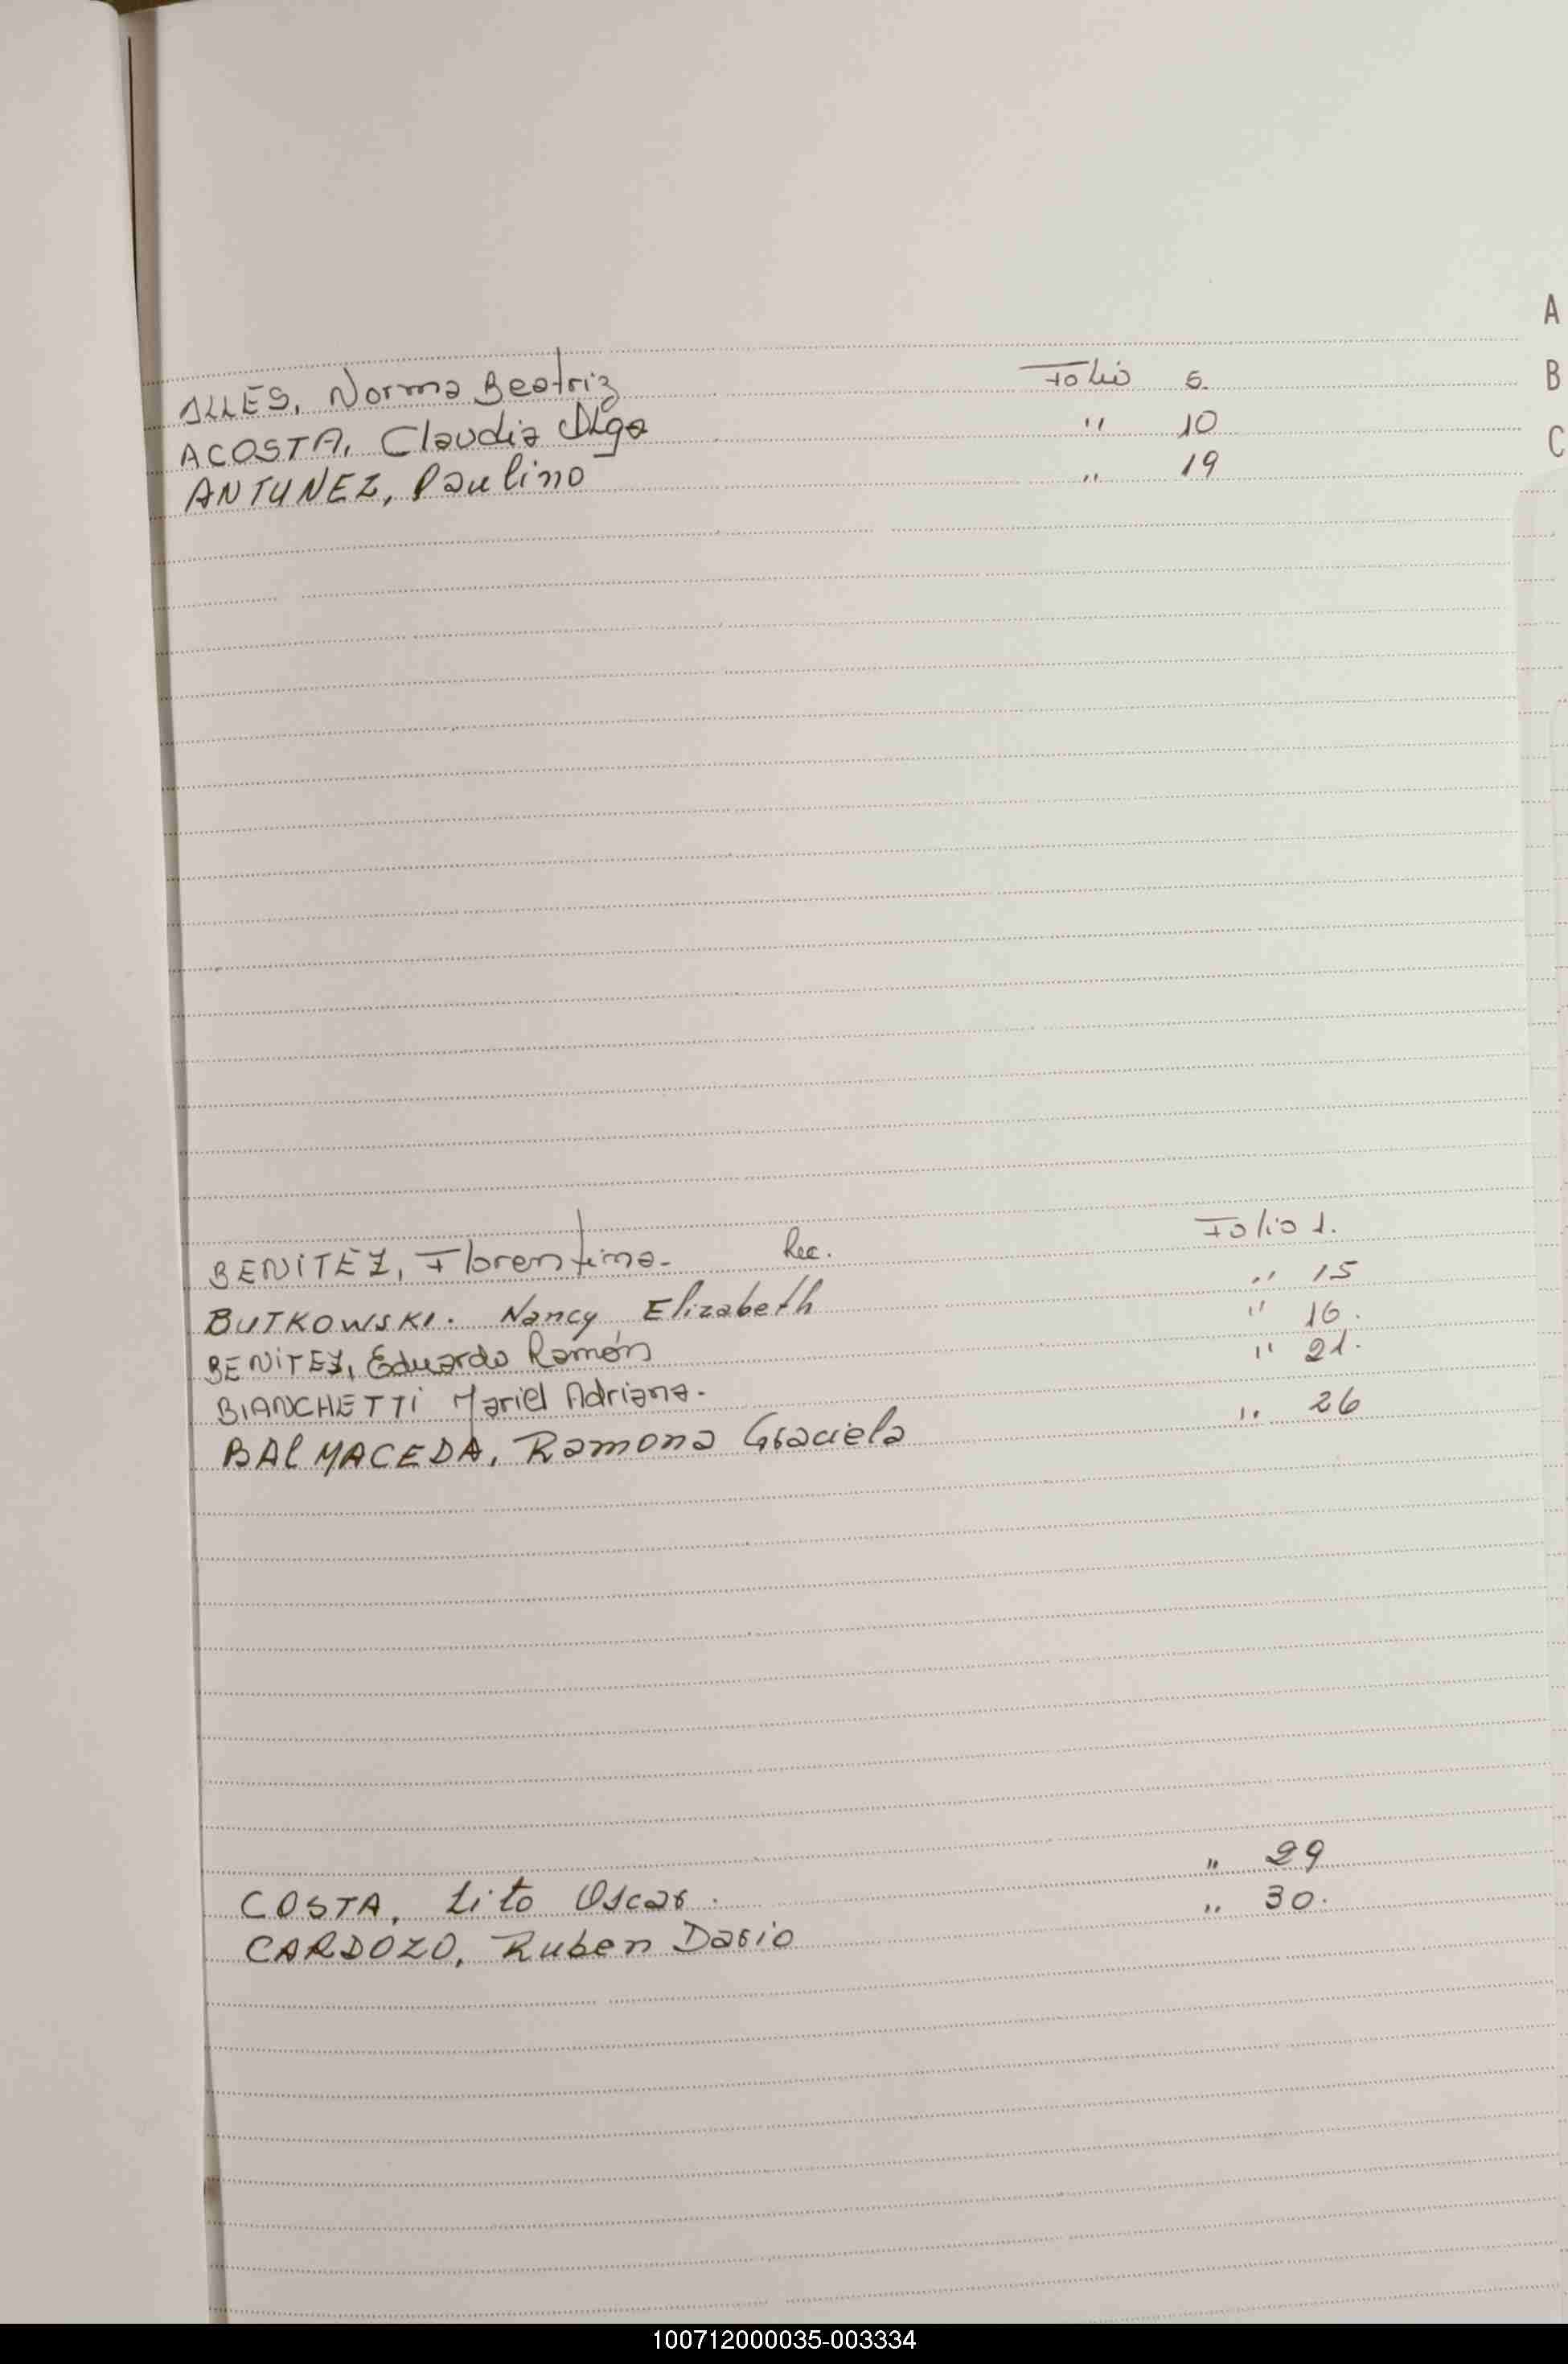 A
B
C
ALLES, Norma Beatriz Folio 6.
ACOSTA, Claudia Olga " 10
ANTUNEZ, Paulino " 19
BENITEZ, Florentina. Rec. Folio 1.
BUTKOWSKI. Nancy Elizabeth " 15
BENITEZ, Eduardo Ramón " 16.
BIANCHETTI Mariel Adriana. " 21.
BALMACEDA, Ramona Graciela " 26
COSTA, Lito Oscar. " 29
CARDOZO, Ruben Dario " 30.
100712000035-003334